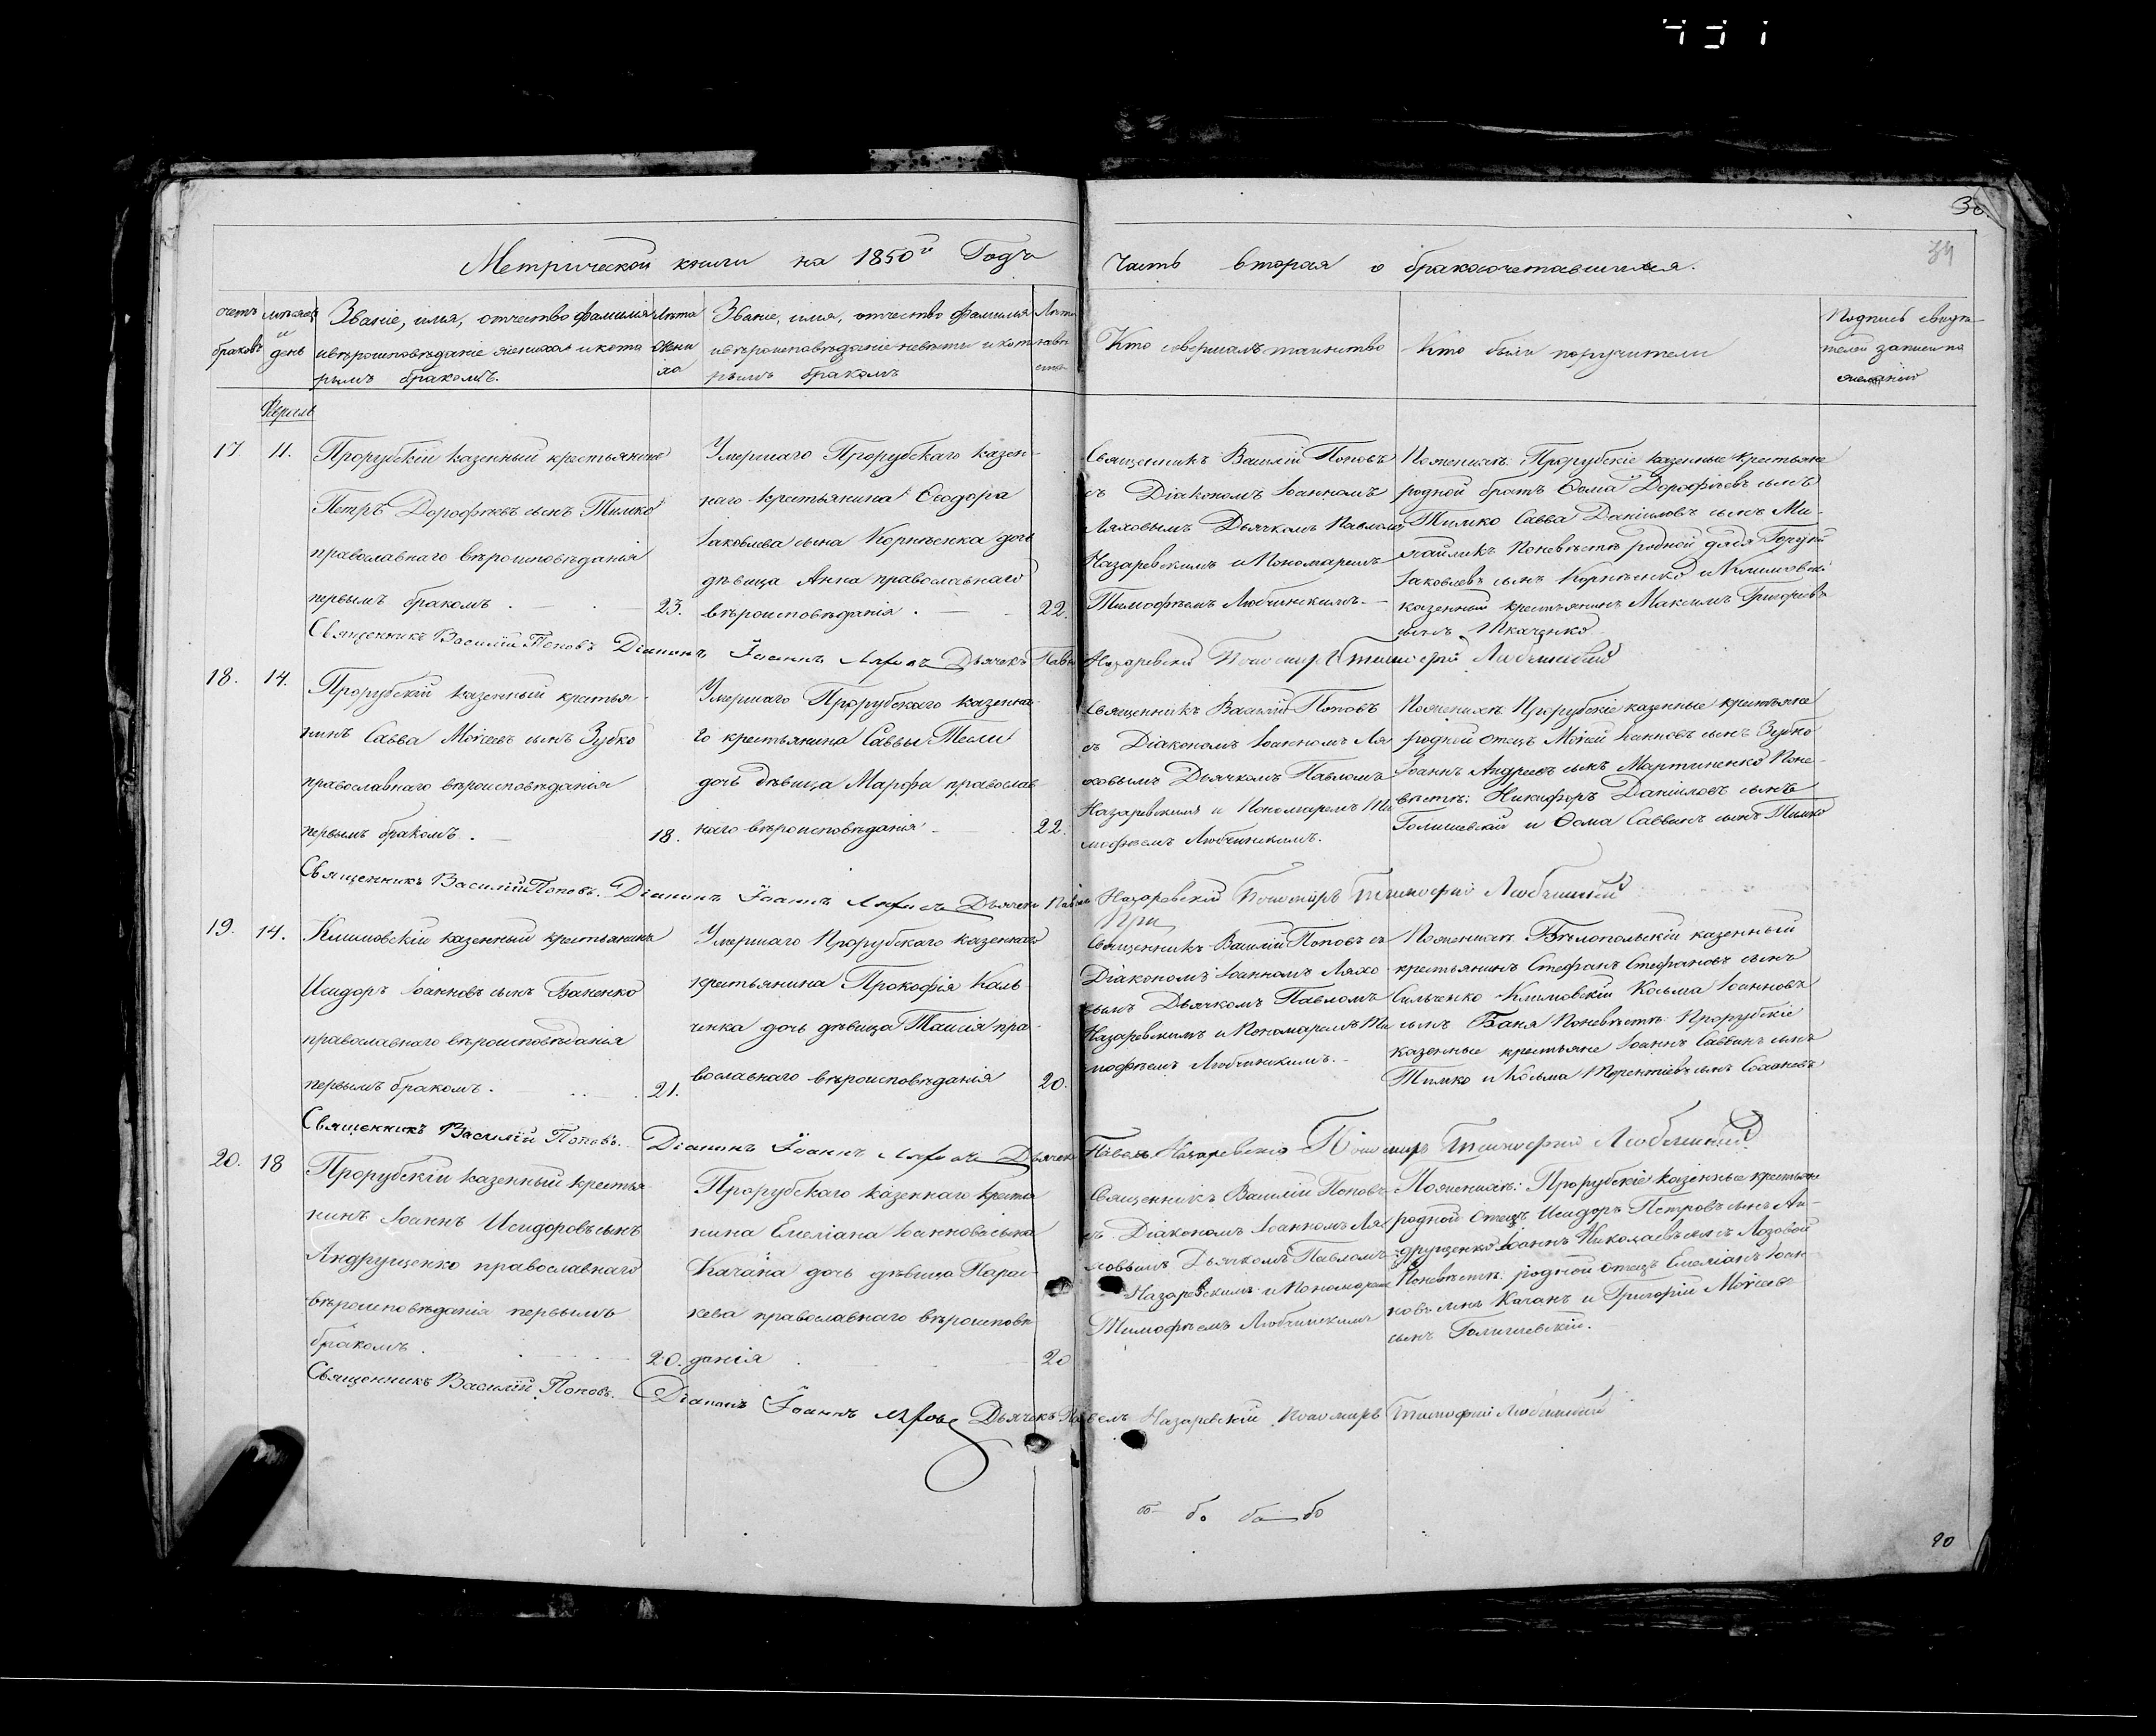 30.
34
Метрической книги на 1850й Годъ
Часть вторая о бракосочетавшихся.
счетъ браковъ
мѣсяцъ и день
Званіе, имя, отчество фамилія
и вѣроисповѣданіе жениха и кото
рымъ бракомъ.
Лѣта
жени
ха
Званіе, имя, отчество фамилія
и вѣроисповѣданіе невѣсты и кот
рымъ бракомъ
Лѣта
невѣ
сты
Кто совершалъ таинство
Кто были поручители
Подпись свидѣ
телей записи по
желанію
17.
11.
Прорубскій казенный крестьянинъ
Петръ Дорофѣевъ сынъ Тимко
православнаго вѣроисповѣданія
первымъ бракомъ.
23.
Умершаго Прорубскаго казен-
наго крестьянина Ѳеодора
Іаковлева сына Корнѣенка дочь
дѣвица Анна православнаго
вѣроисповѣданія.
22.
Священникъ Василій Поповъ
съ Діакономъ Іоанномъ
Ляховымъ Дьячкомъ Павломъ
Назаревскимъ и Пономаремъ
Тимофѣемъ Любчинскимъ.
Поженихѣ: Прорубскіе казенные крестьяне
родной братъ Ѳома Дорофѣевъ сынъ
Тимко Савва Даніиловъ сынъ Ми-
хайликъ Поневѣстѣ родной дядя
Іаковлевъ сынъ Корнѣенко и Климовскій
казенный крестьянинъ Максимъ Григорьевъ
сынъ Ткаченко
Священникъ Василій Поповъ Діаконъ Іоаннъ Ляховъ Дьячекъ Павелъ Назаревскій Пономарь Тимофей Любчинскій
18.
14.
Прорубскій казенный крестья-
нинъ Савва Моѵсеевъ сынъ Зубко
православнаго вѣроисповѣданія
первымъ бракомъ.
18.
Умершаго Прорубскаго казенна-
го крестьянина Саввы Тесли
дочь дѣвица Марфа православ
наго вѣроисповѣданія
22.
Священникъ Василій Поповъ
съ Діакономъ Іоанномъ Ля
ховымъ Дьячкомъ Павломъ
Назаревскимъ и Пономаремъ Ти
мофѣемъ Любчинскимъ.
Поженихѣ Прорубскіе казенные крестьяне
родной отецъ Моѵсей Іоанновъ сынъ Зубко
Іоаннъ Андреевъ сынъ Мартиненко Поне-
вѣстѣ: Никифоръ Даніиловъ сынъ
Голишевскій и Ѳома Саввинъ сынъ Тимко
Священникъ Василій Поповъ. Діаконъ Іоаннъ Ляховъ Дьячекъ Павелъ Назаревскій Пономарь Тимофей Любчинскій
При
19.
14.
Климовскій казенный крестьянинъ
Исидоръ Іоанновъ сынъ Баненко
православнаго вѣроисповѣданія
первымъ бракомъ.
21.
Умершаго Прорубскаго казеннаго
крестьянина Прокофія Каль
ченка дочь дѣвица Таисія пра-
вославнаго вѣроисповѣданія
20.
Священникъ Василій Поповъ съ
Діакономъ Іоанномъ Ляхо
вымъ Дьячкомъ Павломъ
Назаревскимъ и Пономаремъ Ти
мофѣемъ Любчинскимъ.
Поженихѣ Бѣлопольскій казенный
крестьянинъ Стефанъ Стефановъ сынъ
Сильченко Климовскій Косьма Іоанновъ
сынъ Баня Поневѣстѣ Прорубскіе
казенные крестьяне Іоаннъ Саввинъ сынъ
Тимко и Косьма Терентіевъ сынъ
Священникъ Василій Поповъ. Діаконъ Іоаннъ Ляховъ Дьячекъ Павелъ Назаревскій Пономарь Тимофей Любчинскій
20.
18
Прорубскій казенный крестья
нинъ Іоаннъ Исидоровъ сынъ
Андрущенко православнаго
вѣроисповѣданія первымъ
бракомъ.
20.
Прорубскаго казеннаго крестья
нина Емеліана Іоаннова сына
Качана дочь дѣвица Парас-
кева православнаго вѣроисповѣ
данія
20
Священникъ Василій Поповъ
съ Діакономъ Іоанномъ Ля
ховымъ Дьячкомъ Павломъ
Назаревскимъ и Пономаремъ
Тимофѣемъ Любчинскимъ
Поженихѣ: Прорубскіе казенные крестьяне
родной отецъ Исидоръ Петровъ сынъ Ан-
друщенко Іоаннъ Николаевъ сынъ Лозовой
Поневѣстѣ: родной отецъ Емеліанъ Іоан-
новъ сынъ Качанъ и Григорій Моѵсеевъ
сынъ Голишевскій.
Священникъ Василій Поповъ. Діаконъ Іоаннъ Ляховъ Дьячекъ Павелъ Назаревскій Пономарь Тимофей Любчинскій
90